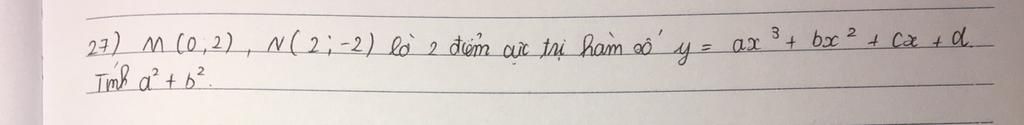 27) M(0;2), N(2;-2) là 2 điểm cực trị hàm số y = ax³ + bx² + cx + d.
Tính a² + b².